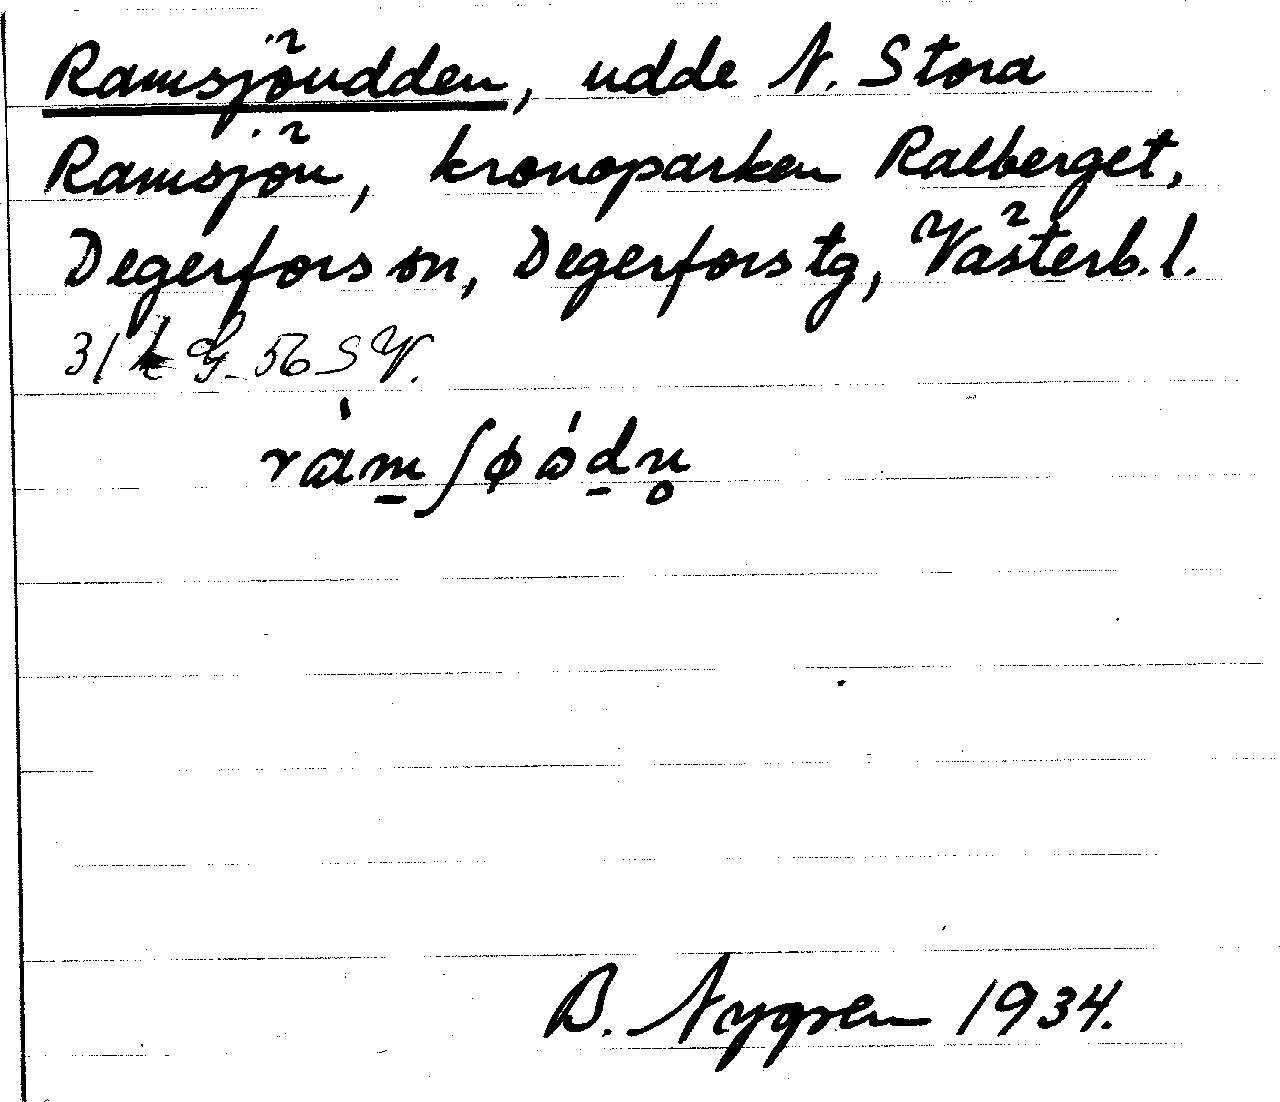 Ramsjöudden, udde N. Stora
Ramsjön, kronoparken Ralberget,
Degerfors sn, Degerfors tg, Västerb. l.
56 SV.
B. Nygren 1934.